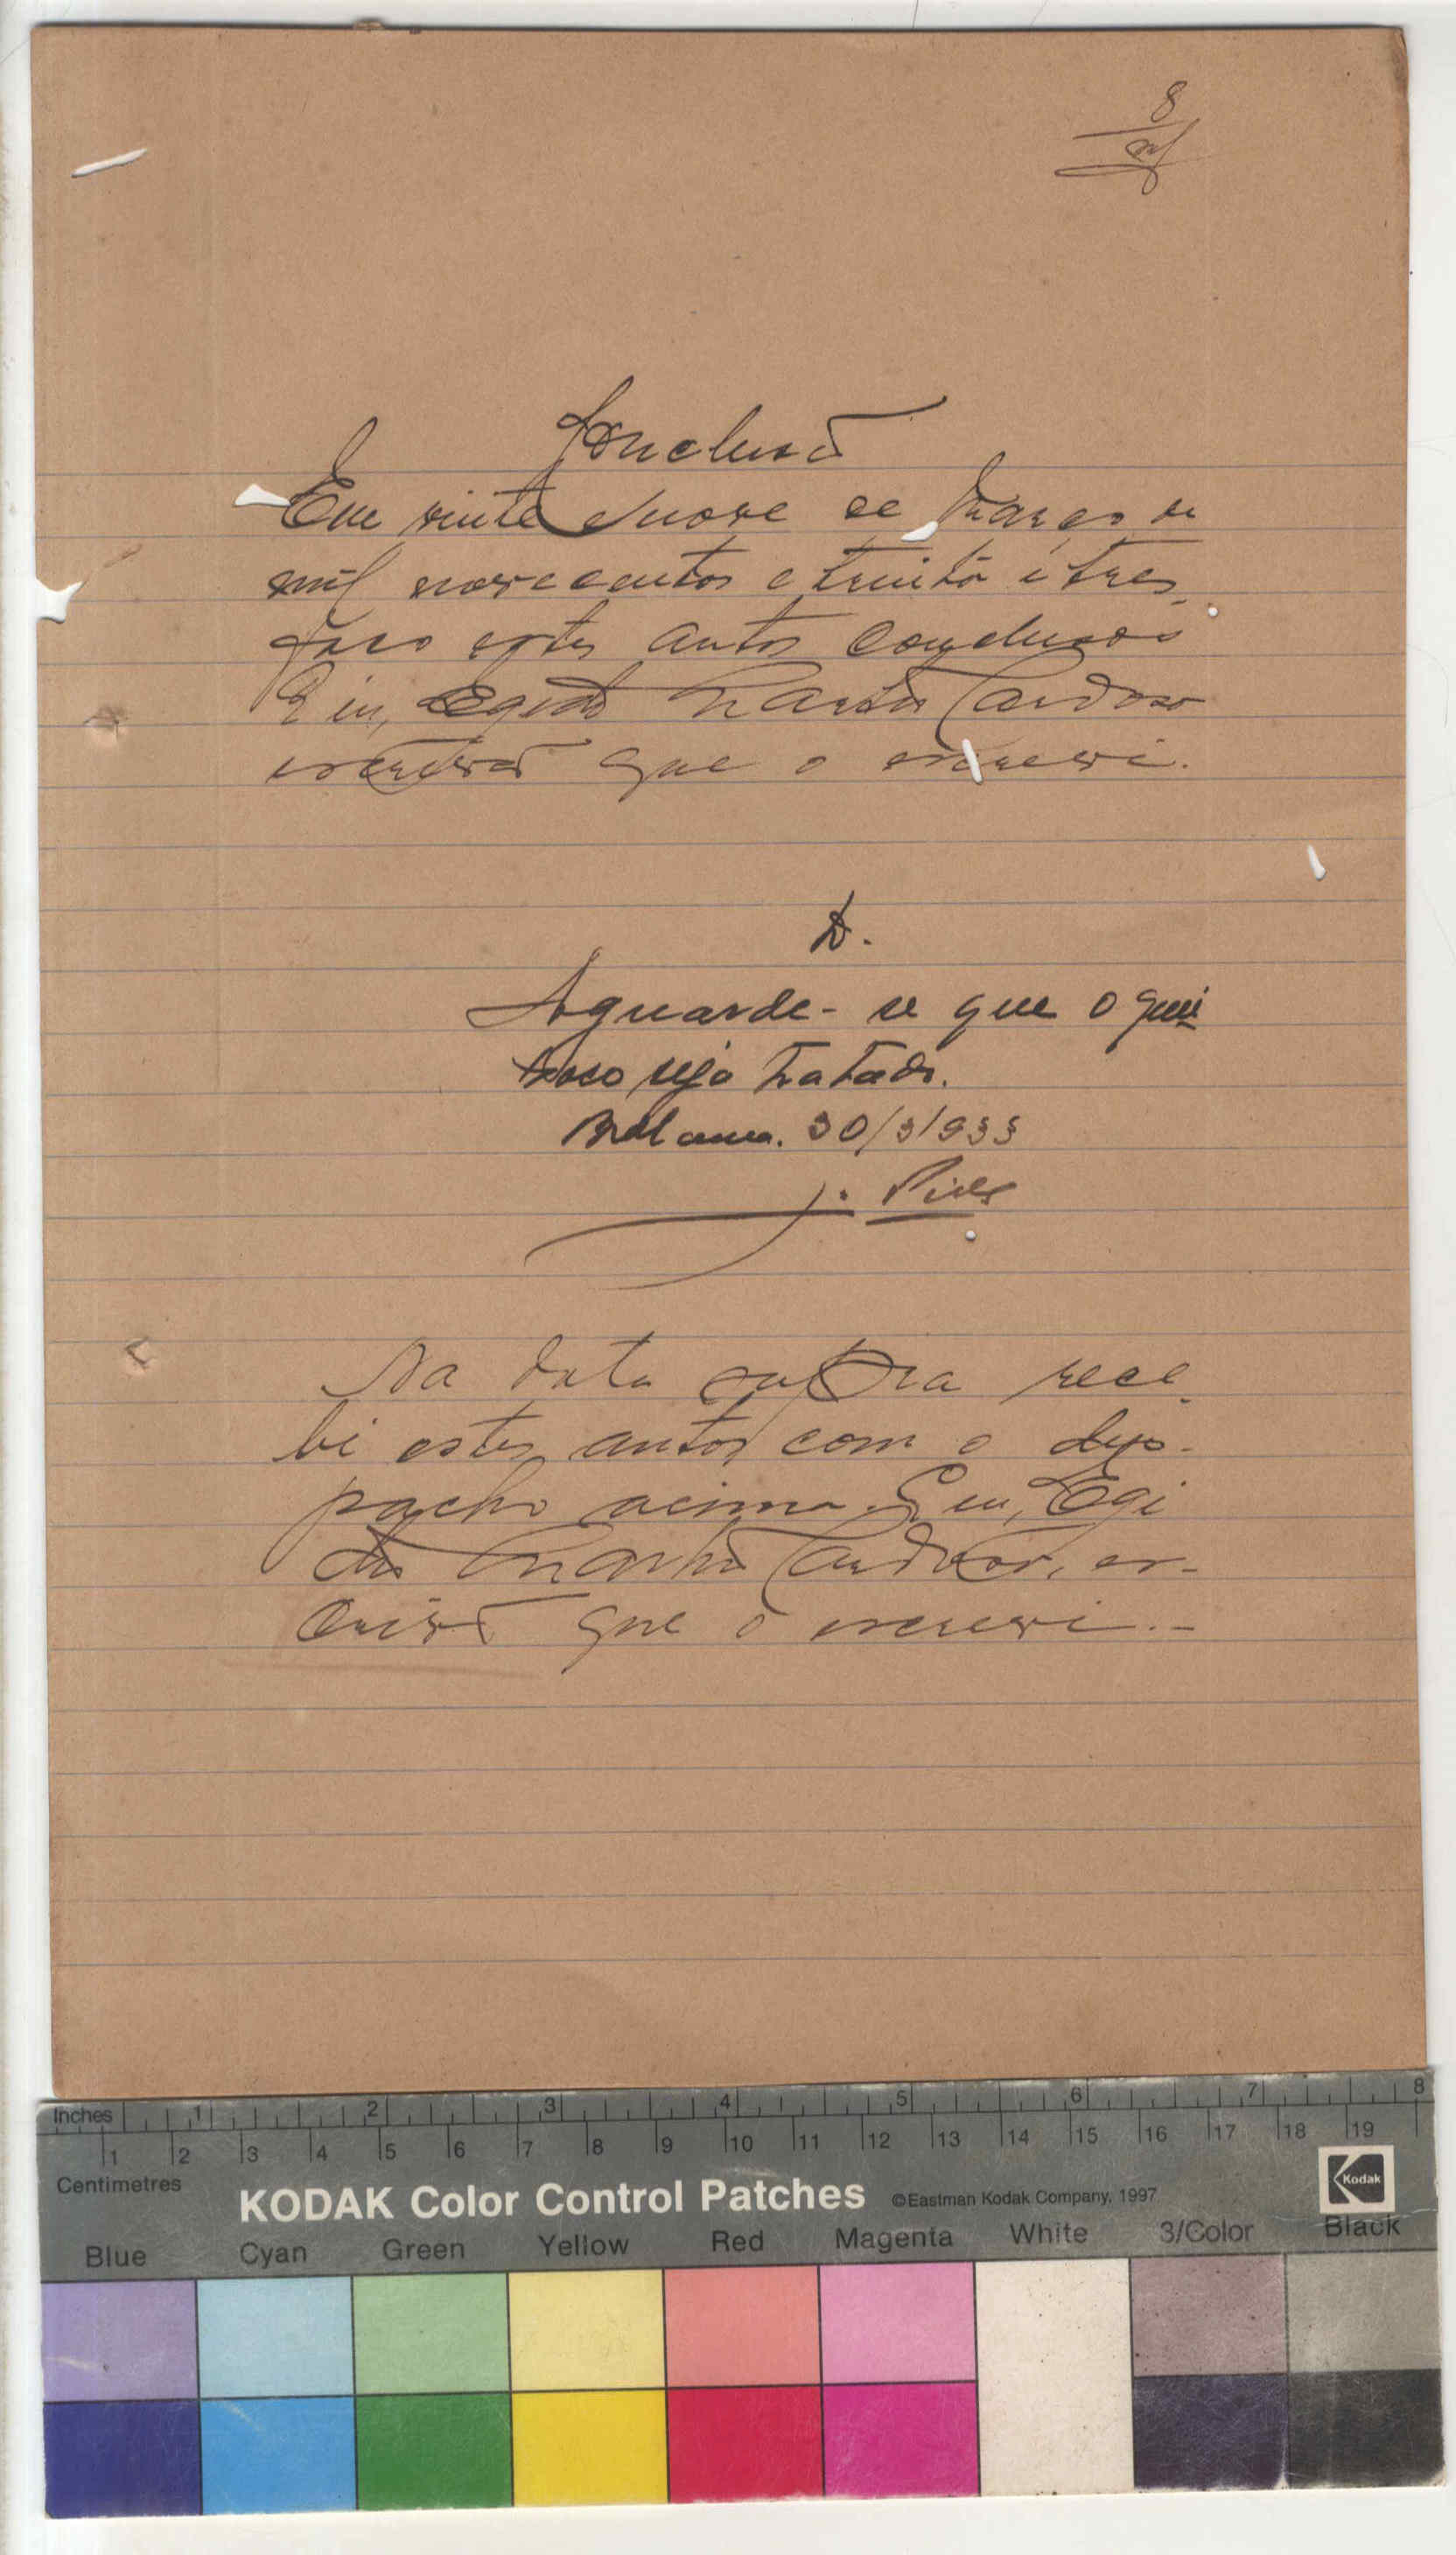 8
Conclusão
Em vinte e nove de Março de
mil novecentos e trinta e tres
faço estes autos conclusos
Eu, Egido Martins Cardoso
escrivão que o escrevi.
D.
Aguarde-se que o quei
xoso seja tratado.
30/3/933
J. Pires
Na data supra rece
bi estes autos com o des-
pacho acima. Eu, Egi
do Martins Cardoso, es-
crivão que o escrevi.-
Inches 1 2 3 4 5 6 7 8
1 2 3 4 5 6 7 8 9 10 11 12 13 14 15 16 17 18 19
Centimetres
KODAK Color Control Patches ©Eastman Kodak Company, 1997 Kodak
Blue Cyan Green Yellow Red Magenta White 3/Color Black